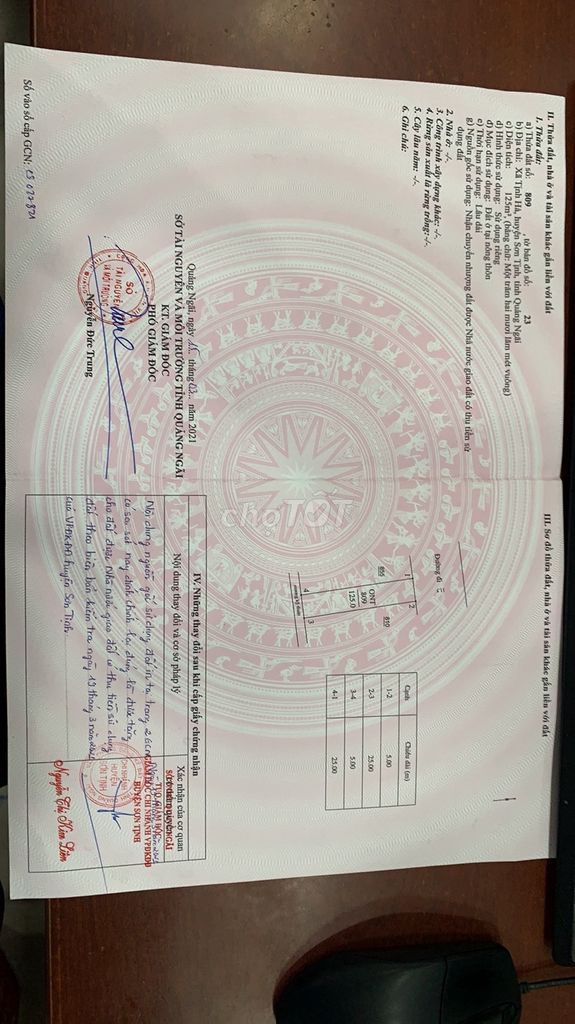 II. Thửa đất, nhà ở và tài sản khác gắn liền với đất
1. Thửa đất:
a) Thửa đất số: 809 , tờ bản đồ số: 23
b) Địa chỉ: Xã Tịnh Hà, huyện Sơn Tịnh, tỉnh Quảng Ngãi
c) Diện tích: 125m², (bằng chữ: Một trăm hai mươi lăm mét vuông)
d) Hình thức sử dụng: Sử dụng riêng
đ) Mục đích sử dụng: Đất ở tại nông thôn
e) Thời hạn sử dụng: Lâu dài
g) Nguồn gốc sử dụng: Nhận chuyển nhượng đất được Nhà nước giao đất có thu tiền sử
dụng đất
2. Nhà ở: -/-
3. Công trình xây dựng khác: -/-
4. Rừng sản xuất là rừng trồng:-/-
5. Cây lâu năm: -/-
6. Ghi chú:
Quảng Ngãi, ngày tháng 03 năm 2021
SỞ TÀI NGUYÊN VÀ MÔI TRƯỜNG TỈNH QUẢNG NGÃI
KT. GIÁM ĐỐC
PHÓ GIÁM ĐỐC
SỞ
TÀI NGUYÊN
VÀ MÔI TRƯỜNG
Nguyễn Đức Trung
Số vào sổ cấp GCN: CS 072821
III. Sơ đồ thửa đất, nhà ở và tài sản khác gắn liền với đất
Đường đi
1
2
ONT
809
125.0
859
4
3
Cạnh Chiều dài (m)
1-2 5.00
2-3 25.00
3-4 5.00
4-1 25.00
chợ TỐT
IV. Những thay đổi sau khi cấp giấy chứng nhận
Nội dung thay đổi và cơ sở pháp lý
Xác nhận của cơ quan
Nội dung nguồn gốc sử dụng đất in tại trang 2 GCN
có sai sót nay đính chính lại đúng là được tặng
cho đất được Nhà nước giao đất có thu tiền sử dụng
đất theo biên bản kiểm tra ngày 19 tháng 3 năm 2021
của VPĐKĐĐ huyện Sơn Tịnh
GIÁM ĐỐC CHI NHÁNH VPĐKĐĐ
HUYỆN SƠN TỊNH
Nguyễn Thị Kim Liên